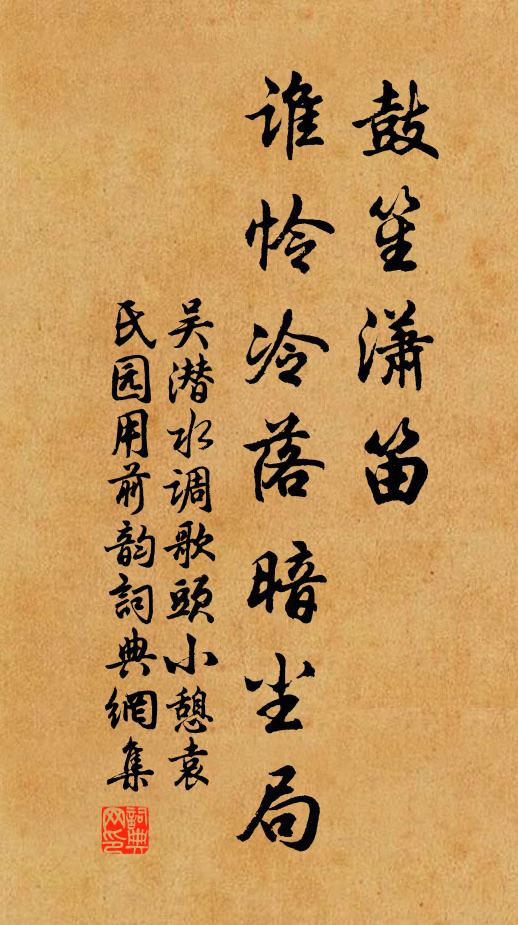 鼓笙潇笛
谁怜冷落暗尘局
吴潜水调歌头小憩袁
氏园用前韵詞典網集
詞典
网印